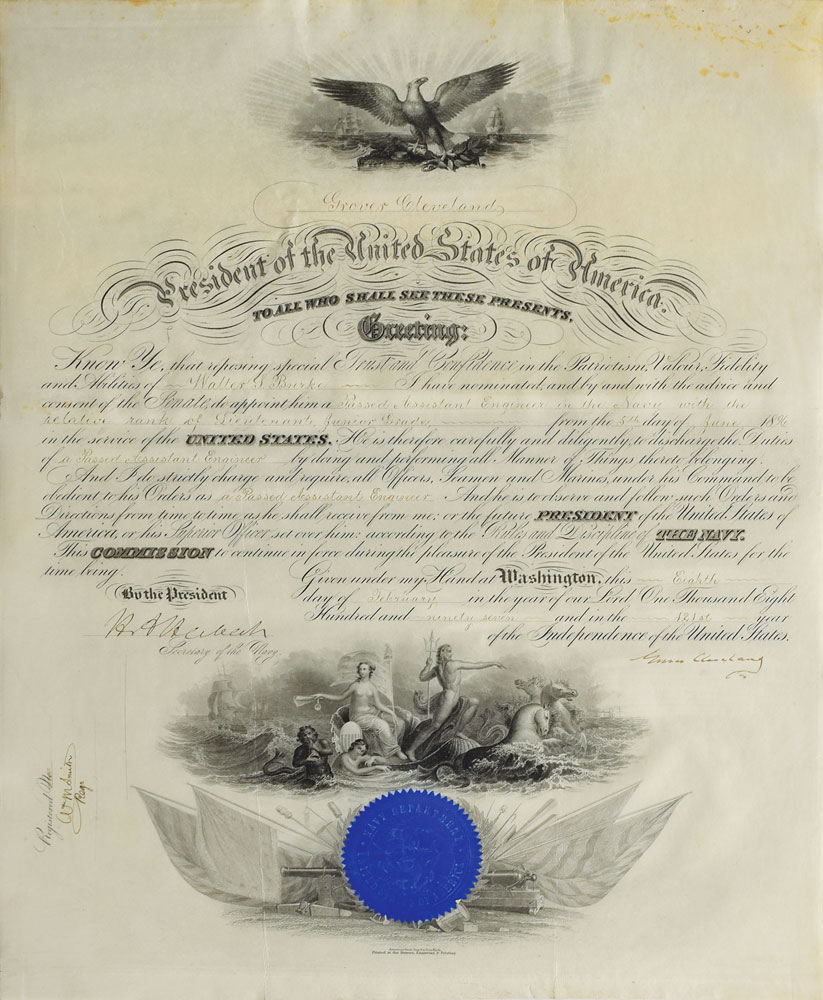 Grover Cleveland
President of the United States of America.
TO ALL WHO SHALL SEE THESE PRESENTS,
Greeting:
Know Ye, that reposing special Trust and Confidence in the Patriotism, Valour, Fidelity
and Abilities of Walter S. Burke I have nominated, and by and with the advice and
consent of the Senate, do appoint him a Passed Assistant Engineer in the Navy with the
relative rank of Lieutenant Junior Grade from the 5th day of June 1896
in the service of the UNITED STATES. He is therefore carefully and diligently to discharge the Duties
of a Passed Assistant Engineer by doing and performing all Manner of Things thereto belonging.
And I do strictly charge and require all Officers, Seamen and Marines, under his Command to be
obedient to his Orders as a Passed Assistant Engineer And he is to observe and follow such Orders and
Directions from time to time as he shall receive from me, or the future PRESIDENT of the United States of
America, or his Superior Officer set over him, according to the Rules and Discipline of THE NAVY.
This COMMISSION to continue in force during the pleasure of the President of the United States for the
time being.
Given under my Hand at Washington, this Eighth
By the President
day of February in the year of our Lord One Thousand Eight
Hundred and ninety seven and in the 121st year
of the Independence of the United States.
Secretary of the Navy.
Grover Cleveland
Registered No.
NAVY DEPARTMENT